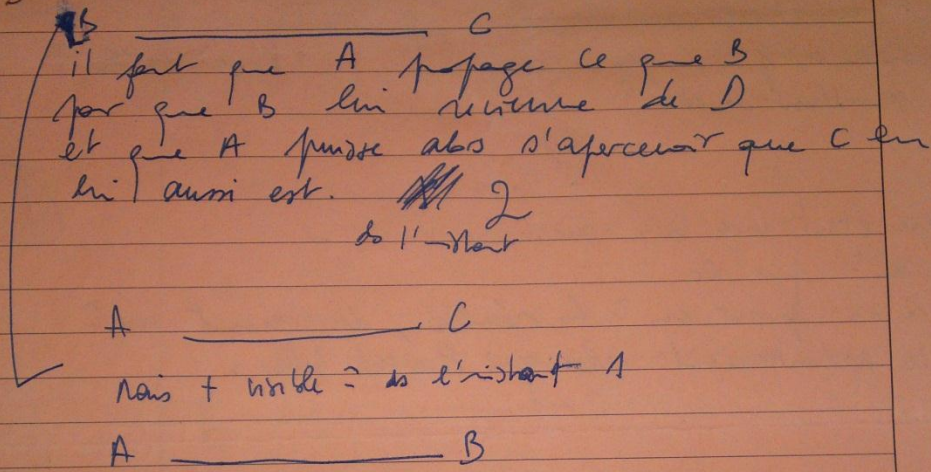 B C
il faut que A propage ce que B
par que B lui revienne de D
et que A puisse alors s'apercevoir que C en
lui aussi est. 2
ds l'instant
A C
Mais + visible = ds l'instant 1
A B